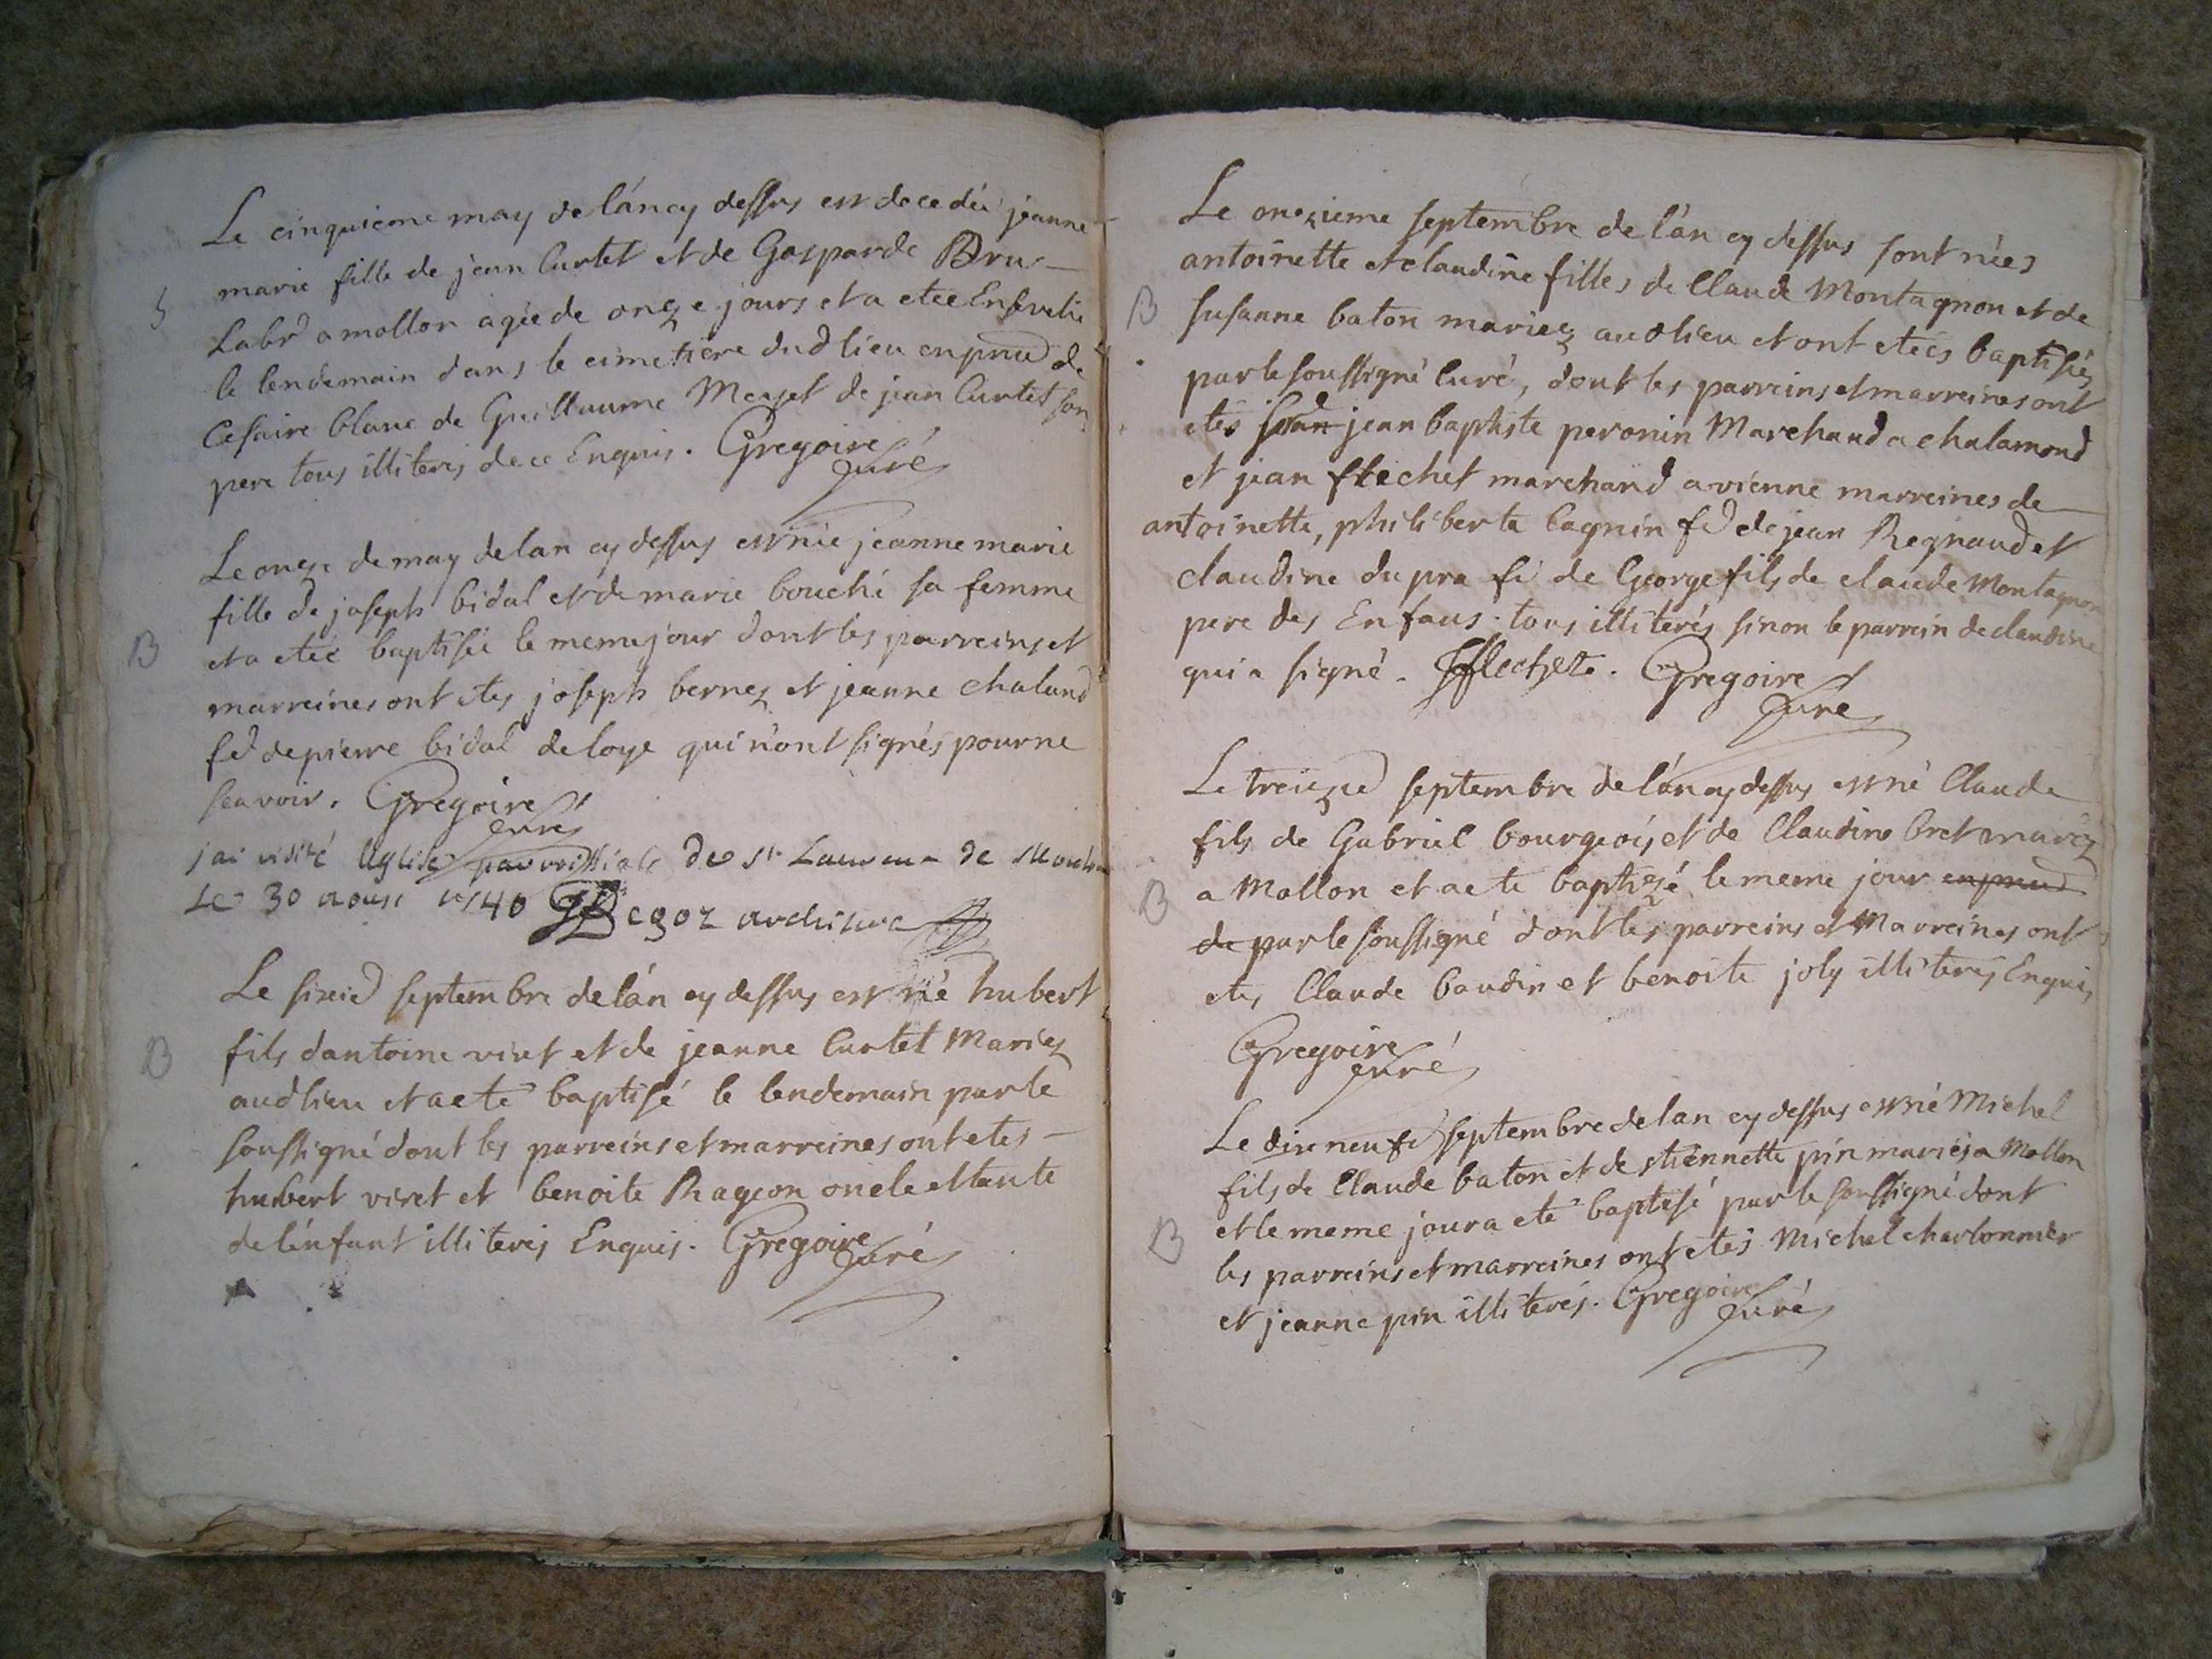 Le cinquieme may de lán cy dessus est decedée jeanne
marie fille de jean Curtet et de Gasparde Bru
S
Labrd a mollon agée de onze jours et a etee Ensevelie
le lendemain dans le cimetiere dud lieu en prnce de
Cesaire blanc de Guillaume Merset de jean Curtet son
pere tous illiterés de ce Enquis. Gregoire
Curé
Le onze de may de lan cy dessus est née jeanne marie
fille de joseph bidal et de marie bouché sa femme
B
et a etée baptisée le meme jour dont les parreins et
marreines ont etes joseph bernez et jeanne chaland
fe de pierre bidal de loye qui n'ont signés pour ne
scavoir. Gregoire
curé
jai visité léglise parroissiale de st Laurent de Mollon
Le 30 aoust 1740 archiprê
Le sixie septembre de lán cy dessus est né hubert
B
fils dantoine viret et de jeanne Curtet Mariez
aud lieu et a ete baptisé le lendemain par le
soussigné dont les parreins et marreines ont etes
hubert viret et benoite Rageon oncle et tante
de lénfant illiterés Enquis. Gregoire
Curé
Le onezieme septembre de lán cy dessus sont nées
antoinette et claudine filles de Claude Montagnon et de
B
susanne baton mariez aud lieu et ont etées baptisées
par le soussigné Curé, dont les parreins et marreines ont
etés jean baptiste peronin Marchand a chalamond
et jean flechet marchand a vienne marreines de
antoinette, philiberte Cagnin fe de jean Regnaud et
claudine du pra fe de George fils de claude Montagnon
pere des Enfans. tous illiterés sinon le parrein de claudine
qui a signé. JFlechet. Gregoire
Curé
Le treizie septembre de lán cy dessus est né Claude
fils de Gabriel bourgeois et de Claudine bret mariez
B
a Mollon et a ete baptizé le meme jour en prnce
de par le soussigné dont les parreins et Marreines ont
etes Claude baudin et benoite joly illiterés Enquis
Gregoire
curé
Le dix neufe septembre de lan cy dessus est né Michel
fils de Claude baton et de etiennette pin mariés a Mollon
et le meme jour a ete baptisé par le soussigné dont
B
les parreins et marreines ont etés Michel charbonnier
et jeanne pin illiterés. Gregoire
Curé